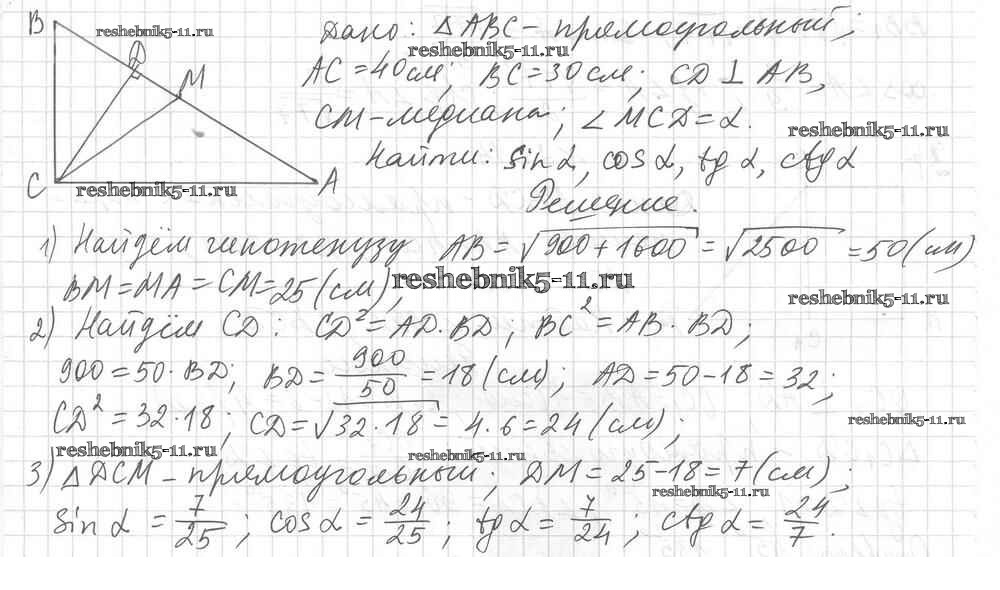 B
reshebnik5-11.ru
D
M
C
A
reshebnik5-11.ru
Дано: △ABC - прямоугольный;
reshebnik5-11.ru
AC = 40 см; BC = 30 см; CD ⊥ AB,
CM - медиана; ∠MCD = α.
reshebnik5-11.ru
Найти: sin α, cos α, tg α, ctg α
Решение.
1) Найдём гипотенузу AB = √900+1600 = √2500 = 50 (см)
BM = MA = CM = 25 (см),
reshebnik5-11.ru
reshebnik5-11.ru
2) Найдём CD: CD² = AD · BD; BC² = AB · BD;
900 = 50 · BD; BD = 900/50 = 18 (см); AD = 50 - 18 = 32;
CD² = 32 · 18; CD = √32 · 18 = 4 · 6 = 24 (см);
reshebnik5-11.ru
reshebnik5-11.ru
reshebnik5-11.ru
3) △DCM - прямоугольный; DM = 25 - 18 = 7 (см);
reshebnik5-11.ru
sin α = 7/25; cos α = 24/25; tg α = 7/24; ctg α = 24/7.